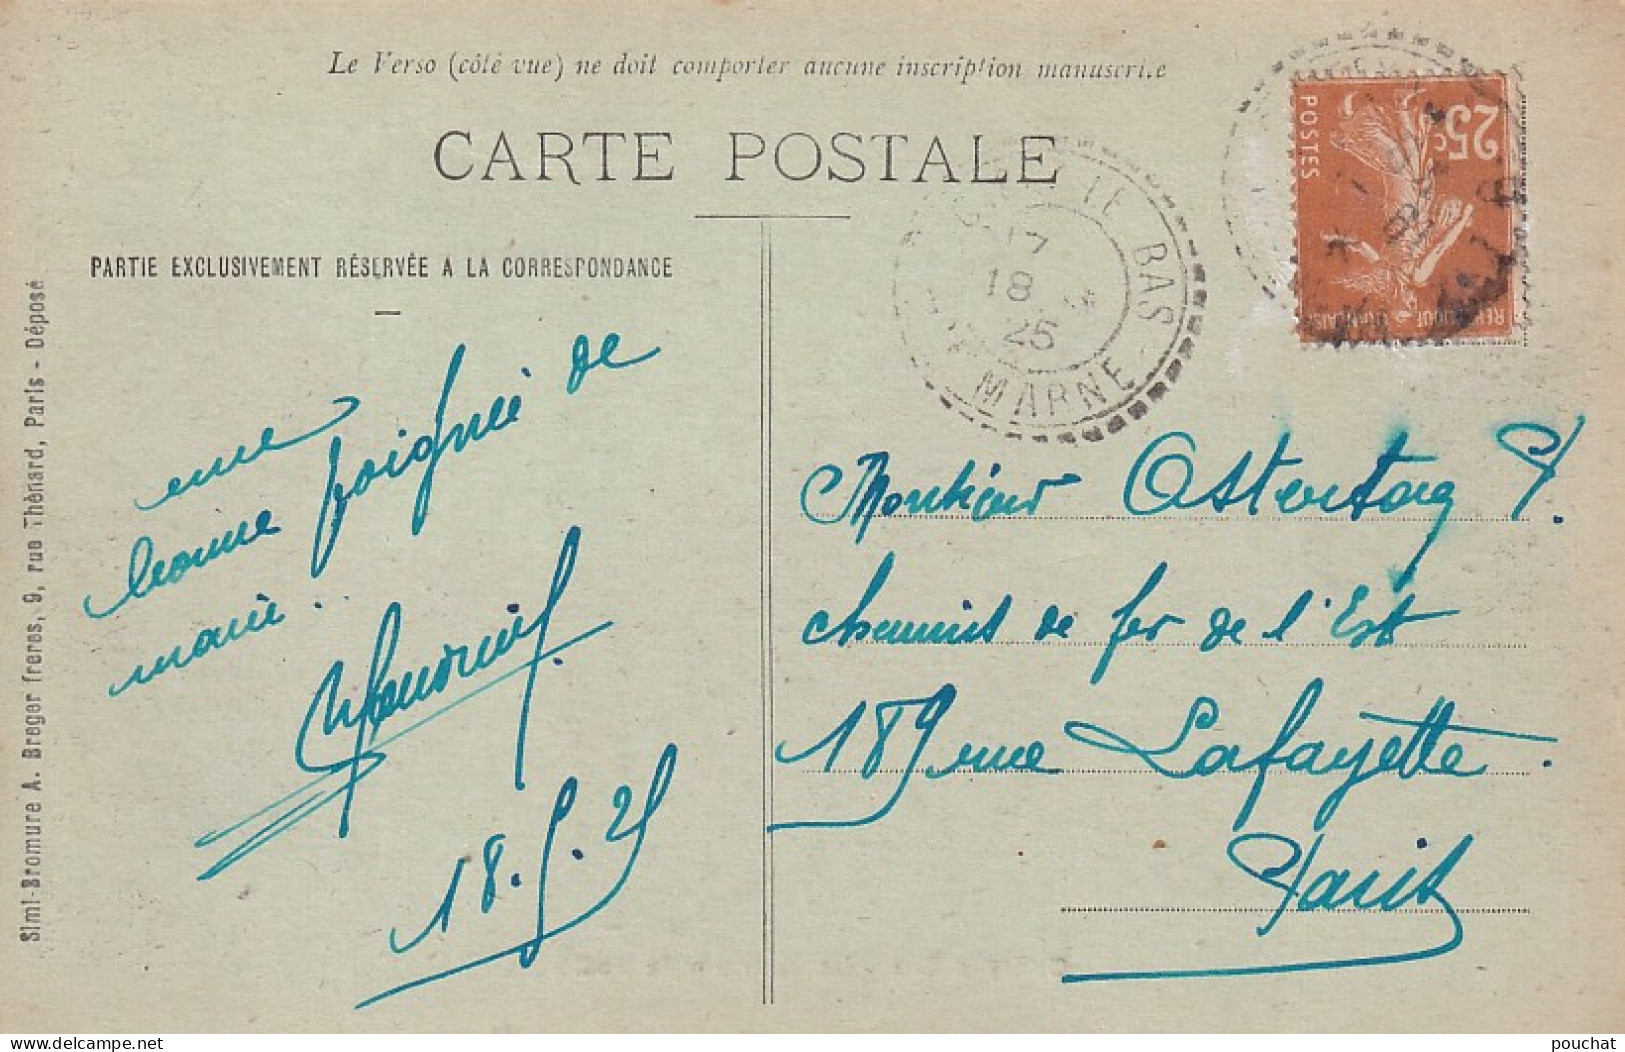 Le Verso (côté vue) ne doit comporter aucune inscription manuscrite
CARTE POSTALE
PARTIE EXCLUSIVEMENT RÉSERVÉE A LA CORRESPONDANCE
Simi-Bromure A. Breger frères, 9, rue Thénard, Paris - Déposé
une
bonne poignée de
main..
18.5.25
BAS
17
18
25
MARNE
25c
POSTES
Monsieur Ostertag P.
chemins de fer de l'Est
189 rue Lafayette.
Paris
pouchat